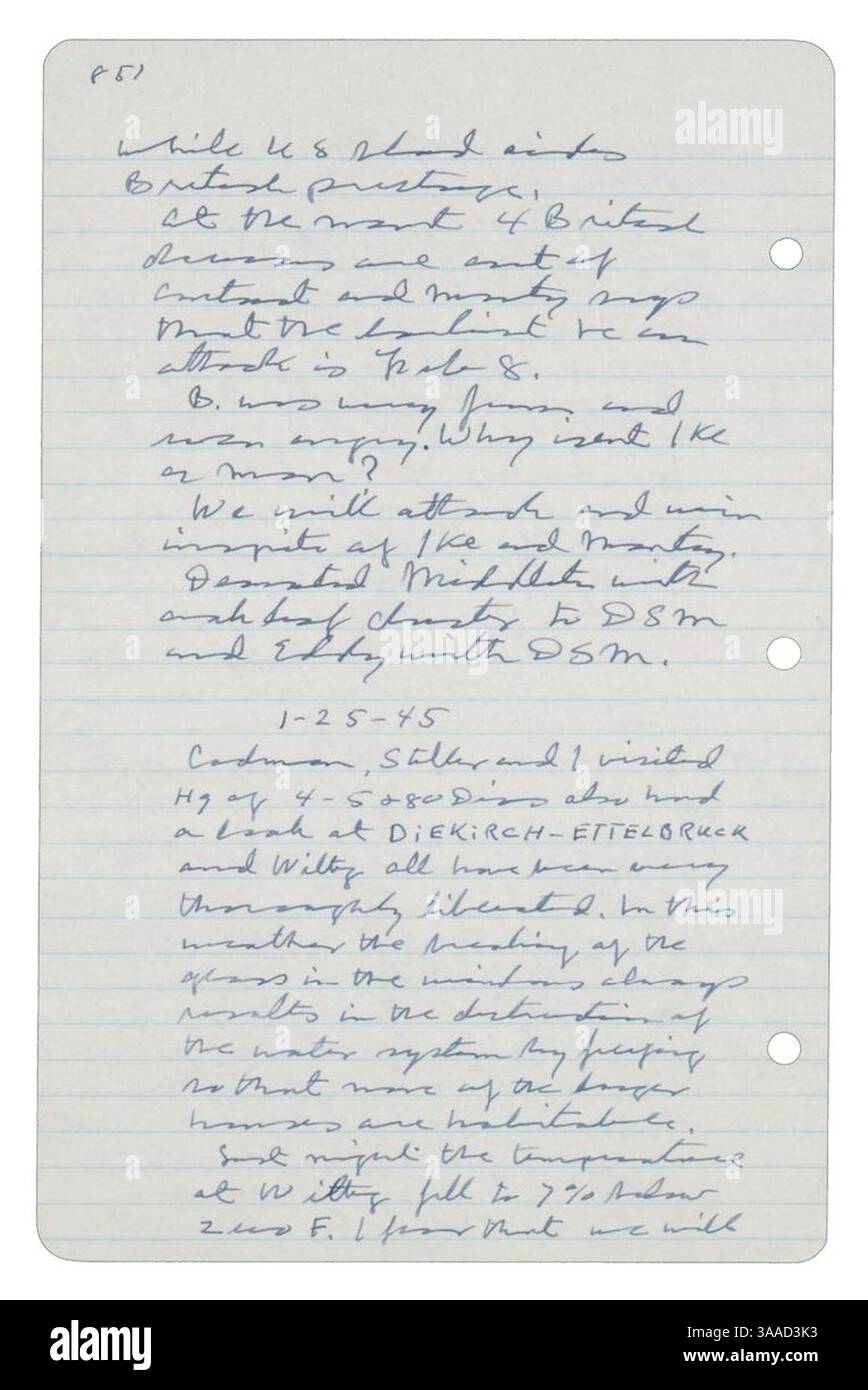 851
while U S blood aids
British prestige.
at the momt 4 British
divisions are out of
contact and Monty says
that the earliest he can
attack is Feb 8.
B. was very firm and
even angry. Why isent Ike
a man?
We will attack and win
inspite of Ike and Monty.
Decorated Middleton with
oak leaf cluster to DSM
and Eddy with DSM.
1-25-45
Codman, Stiller and I visited
Hq of 4-5 & 80 Divs also had
a look at DIEKIRCH-ETTELBRUCK
and Wiltz all have been very
thoroughly liberated. In this
weather the breaking of the
glass in the windows always
results in the distruction of
the water system by freezing
so that none of the larger
houses are habitable.
Last night the temperature
at Wiltz fell to 7% below
zero F. I fear that we will
alamy
Image ID: 3AAD3K3
www.alamy.com